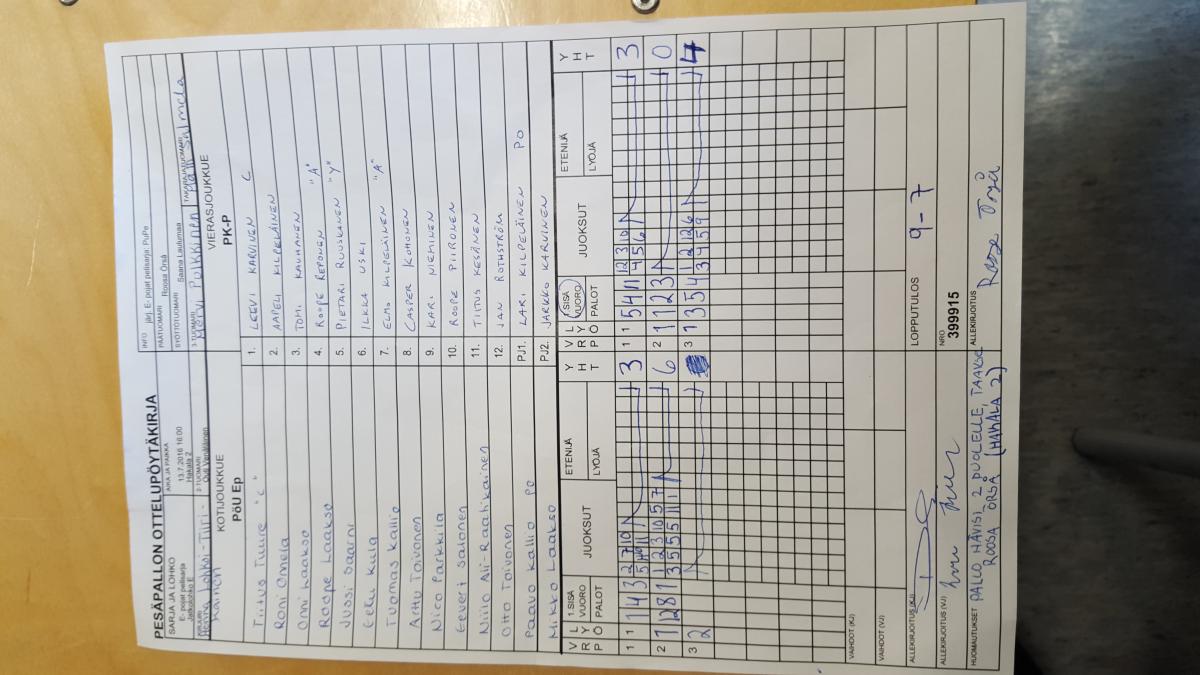 PESÄPALLON OTTELUPÖYTÄKIRJA
INFO järj. E- pojat pelisarja: PuPe
SARJA JA LOHKO
E- pojat pelisarja
Jatkolohko E
AIKA JA PAIKKA
13.7.2016 16.00
Hakala 2
PÄÄTUOMARI Roosa Örsä
SYÖTTÖTUOMARI Saana Lautumaa
KIRJURI
2-TUOMARI
3-TUOMARI
Mervi Pulkkinen
TAKARAJATUOMARI
KOTIJOUKKUE
PöU Ep
VIERASJOUKKUE
PK-P
Tiitus Tuure "C"
1. LEEVI KARVINEN C
Roni Omela
2. AAPELI KILPELÄINEN
Omi Laakso
3. TOMI KAUHANEN
Roope Laakso
4. ROOPE REPONEN "A"
Jussi Saarni
5. PIETARI RUUSKANEN "Y"
Eetu Kula
6. ILKKA USKI
Tuomas Kallio
7. ELMO KILPELÄINEN "A"
Arttu Toivonen
8. CASPER KOHONEN
Nico Parkkila
9. KARI NIEMINEN
Eevert Salonen
10. ROOPE PIIRONEN
Niilo Ali-Raatikainen
11. TIITUS KESÄNEN
Otto Toivonen
12. JAN ROTHSTRÖM
Paavo Kallio PO
PJ1. LARI KILPELÄINEN PO
Mikko Laakso
PJ2. JARKKO KARVINEN
VRP LYÖ 1.SISÄ VUORO PALOT JUOKSUT ETENIJÄ LYÖJÄ YHT
VRP LYÖ 1.SISÄ VUORO PALOT JUOKSUT ETENIJÄ LYÖJÄ YHT
1 1 4 3 2 7 10 3
1 1 5 4 11 12 3 10 4 5 6 3
2 1 12 8 1 1 2 3 10 5 7 3 5 5 5 11 11 6
2 1 1 2 3 0
3 2
3 1 3 5 4 1 2 12 6 3 4 5 9 4
VAIHDOT (KJ)
VAIHDOT (VJ)
ALLEKIRJOITUS (KJ)
LOPPUTULOS 9-7
ALLEKIRJOITUS (VJ)
NRO
399915
HUOMAUTUKSET PALLO HÄVISI 2 PUOLELLE TAAKSE
ROOSA ÖRSÄ (HAKALA 2)
ALLEKIRJOITUS Roosa Örsä